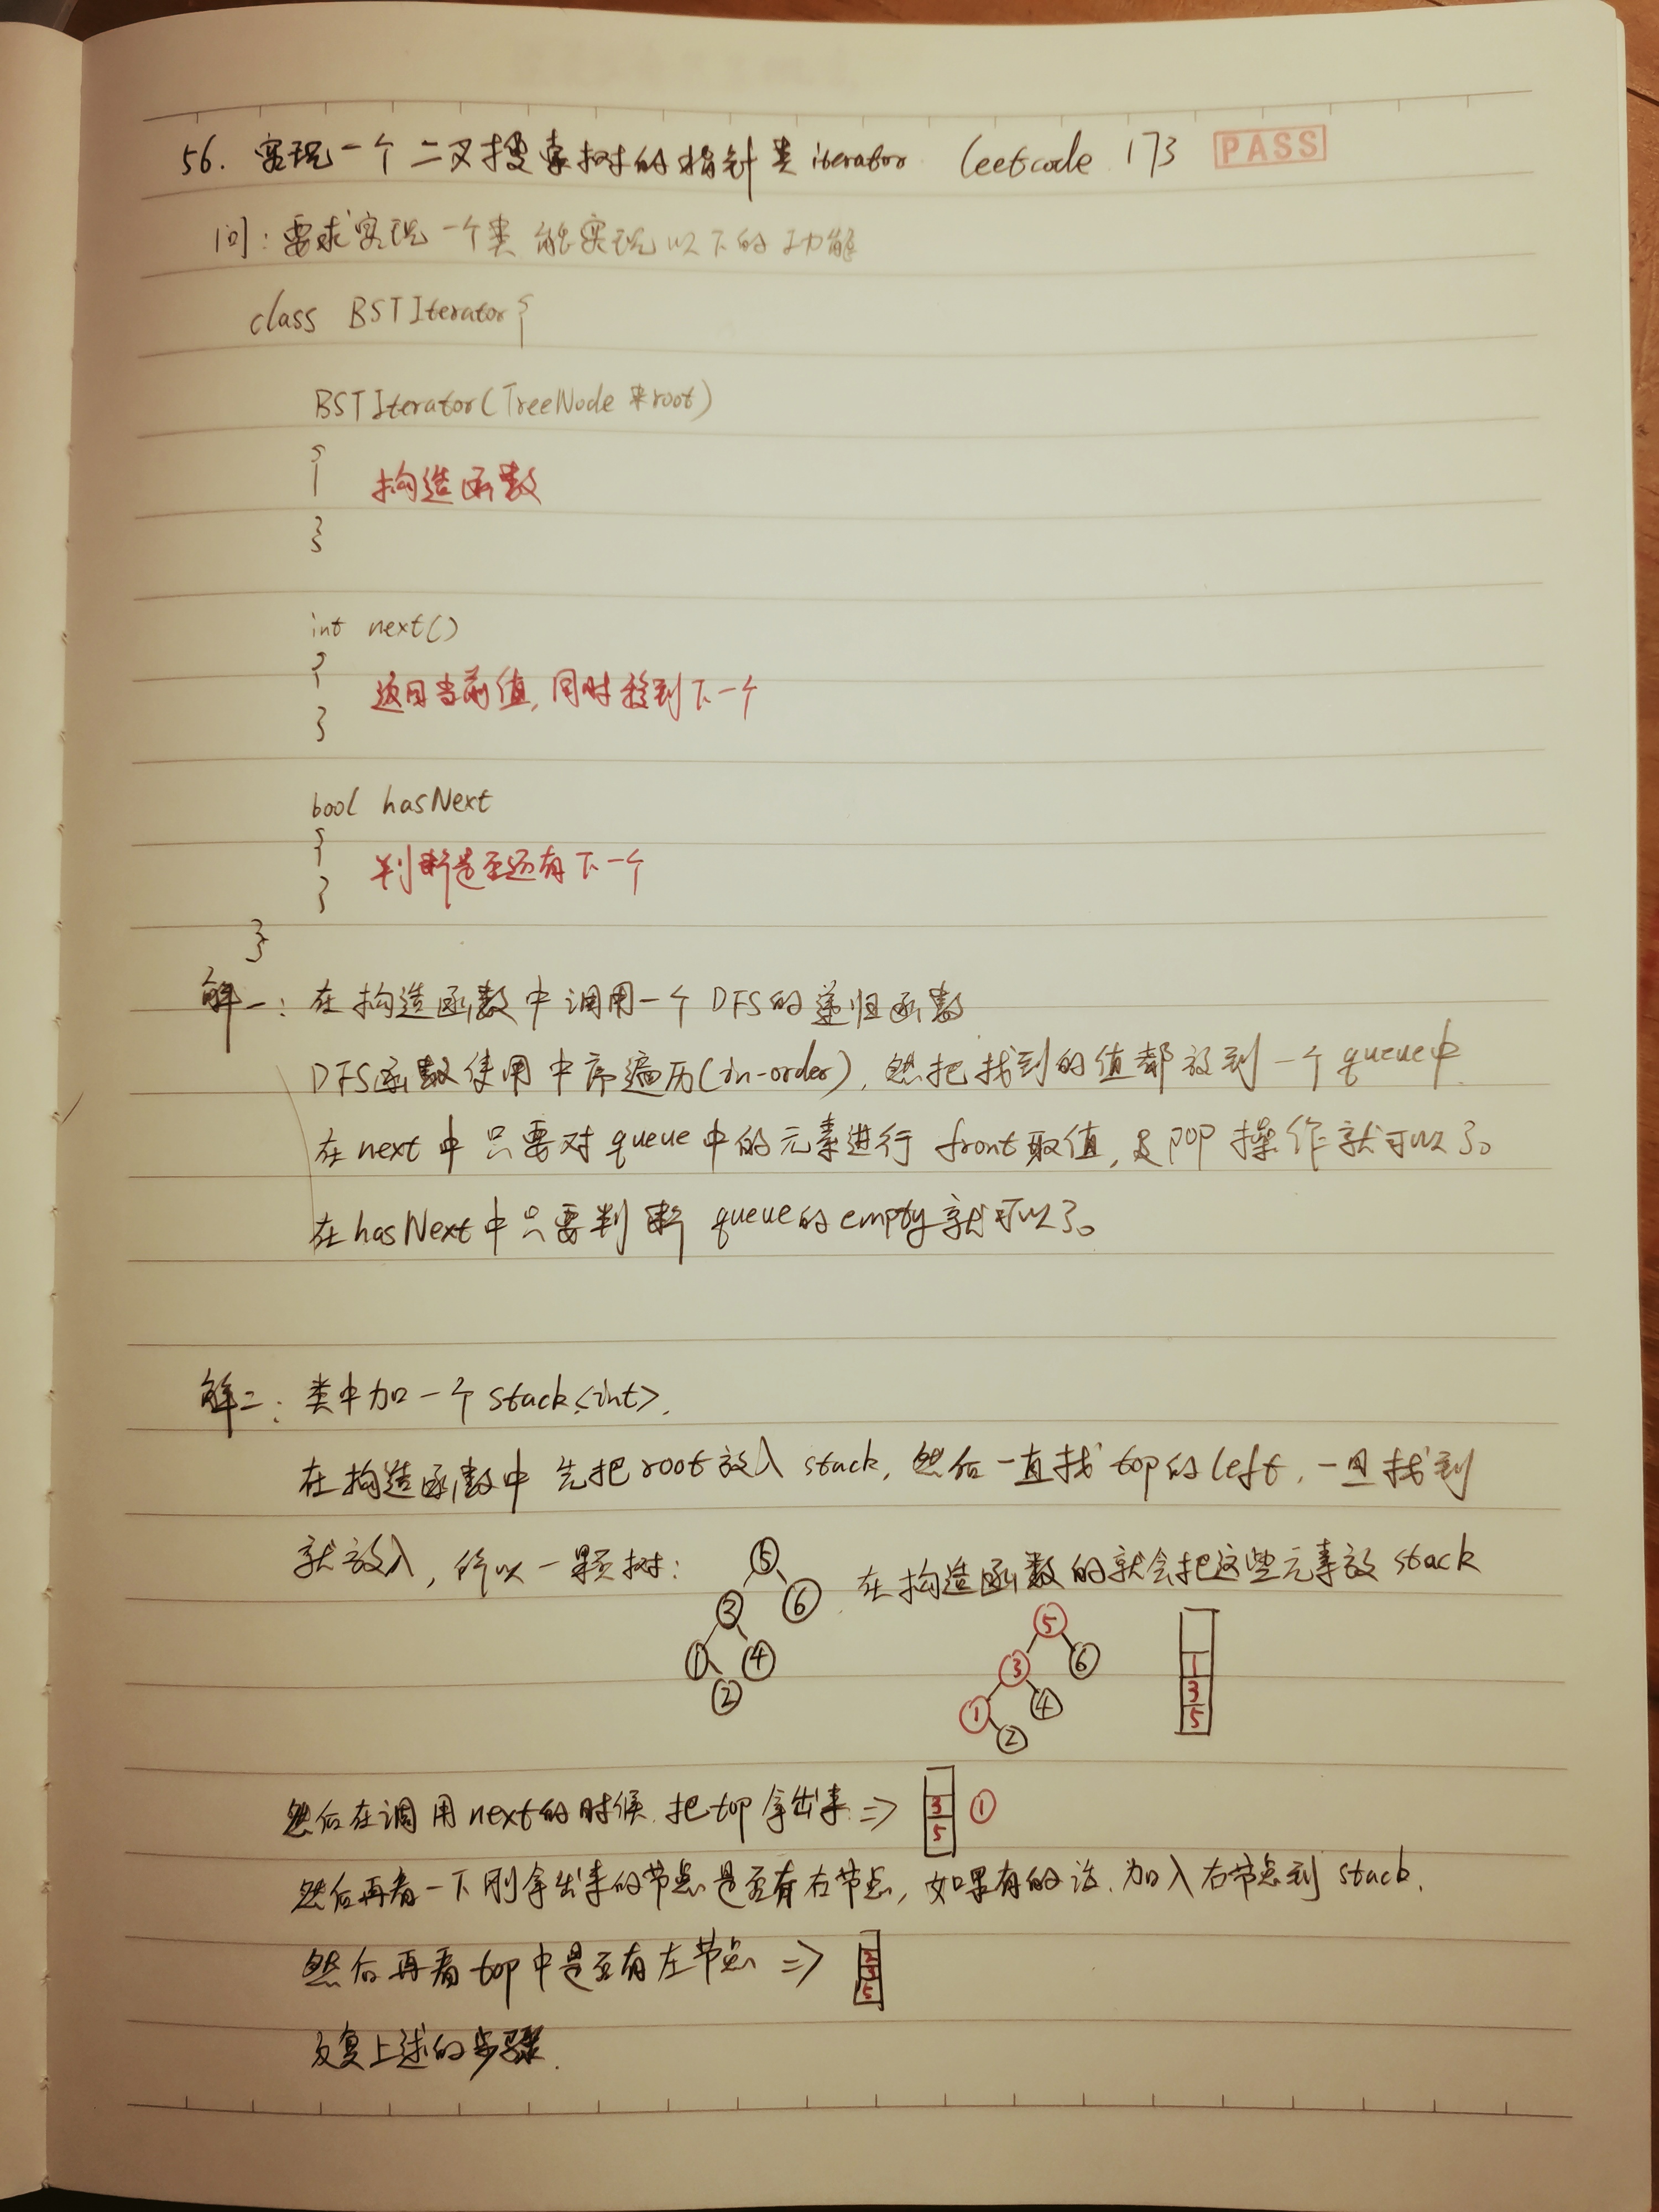 56. 实现一个二叉搜索树的指针类 iterator leetcode 173 PASS
问：要求实现一个类 能实现以下的功能
class BSTIterator{
BSTIterator(TreeNode *root)
{
构造函数
}
int next()
{
返回当前值，同时移到下一个
}
bool hasNext
{
判断是否还有下一个
}
}
解一：在构造函数中调用一个DFS的递归函数
DFS函数使用中序遍历(in-order)，然把找到的值都放到一个queue中
在next中只要对queue中的元素进行front取值，及pop操作就可以了。
在hasNext中只要判断queue的empty就可以了。
解二：类中加一个stack<int>.
在构造函数中先把root放入stack，然后一直找top的left，一旦找到
就放入，所以一颗树：
5
3 6
1 4
2
在构造函数的就会把这些元素放stack
5
3 6
1 4
2
1
3
5
然后在调用next的时候，把top拿出来 => 3 1
5
然后再看一下刚拿出来的节点是否有右节点，如果有的话，加入右节点到stack.
然后再看top中是否有左节点 => 2
3
5
反复上述的步骤.